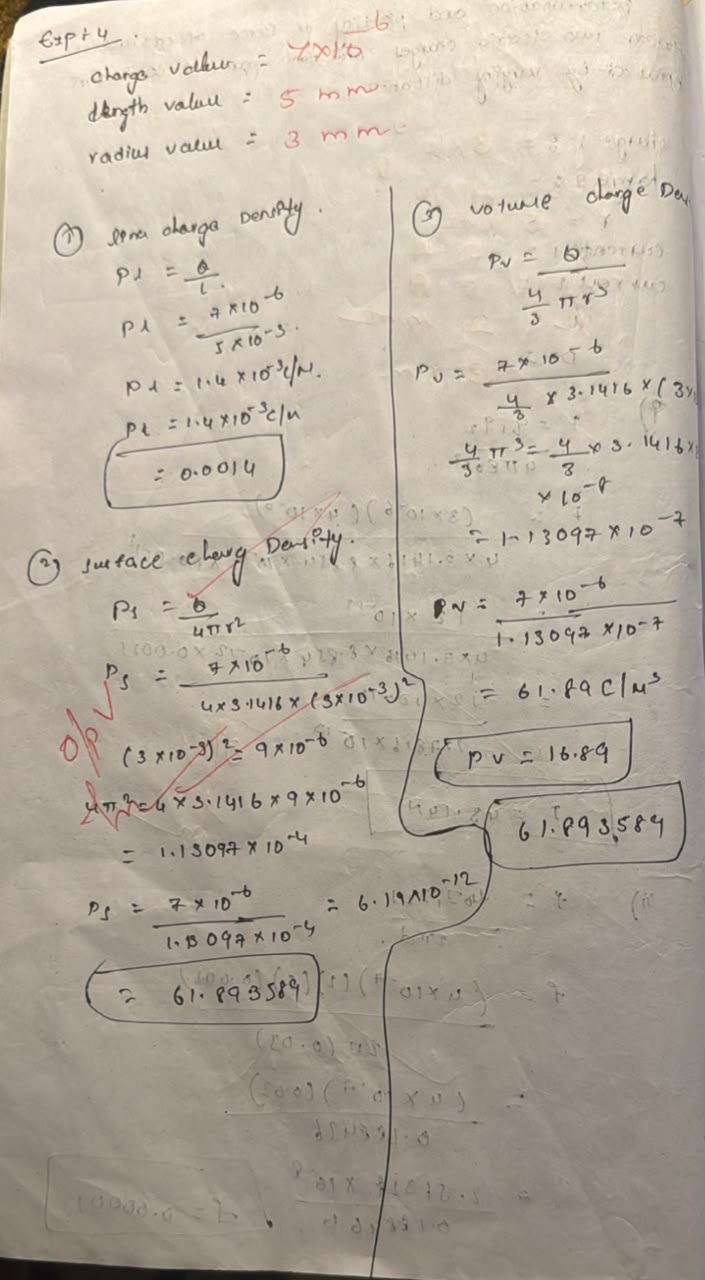 Expt 4.
charge value = 7×10⁻⁶
length value = 5 mm
radius value = 3 mm
① line charge Density.
ρl = Q/L.
ρl = 7×10⁻⁶/5×10⁻³.
ρl = 1.4×10⁻³ c/M.
ρl = 1.4×10⁻³ c/M
= 0.0014
② surface charg Density.
ρs = Q/4πr²
ρs = 7×10⁻⁶/4×3.1416×(3×10⁻³)²
o/p
(3×10⁻³)² = 9×10⁻⁶
4πr² = 4×3.1416×9×10⁻⁶
= 1.13097×10⁻⁴
ρs = 7×10⁻⁶/1.13097×10⁻⁴ = 6.19×10⁻¹²
= 61.893589
③ volume charge Den
ρv = Q/4/3 πr³
ρv = 7×10⁻⁶/4/3 × 3.1416×(3×
4/3 πr³ = 4/3 × 3.1416×
×10⁻⁹
= 1.13097×10⁻⁷
ρv = 7×10⁻⁶/1.13097×10⁻⁷
= 61.89 C/M³
ρv = 16.89
61.893589